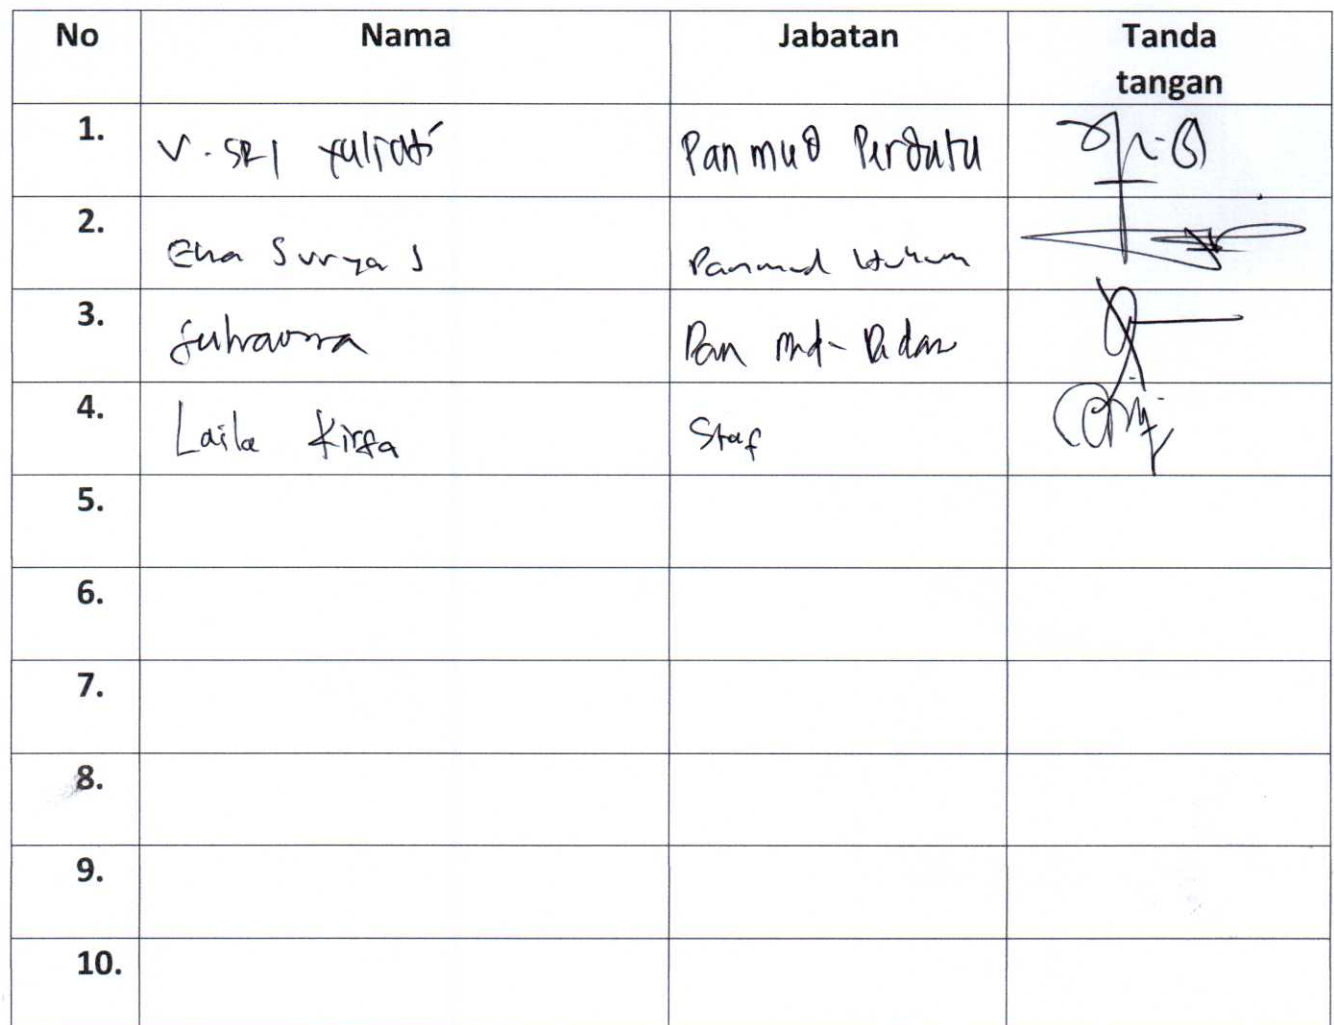 No Nama Jabatan Tanda tangan
1. V. SRI Yuliati Panmud Perdata
2. Surya S Panmud Hukum
3. Pan Mud
4. Laila Kirfa Staf
5.
6.
7.
8.
9.
10.